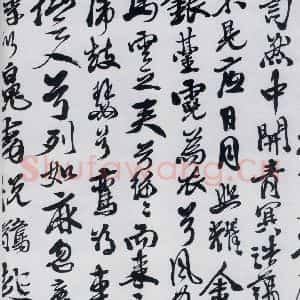 訇然中開青冥浩蕩
不見底日月照耀金
銀臺霓為衣兮風
馬雲之君兮紛紛而來
虎鼓瑟兮鸞回車
之人兮列如麻忽
以魄動怳驚起
Shufawang.cn